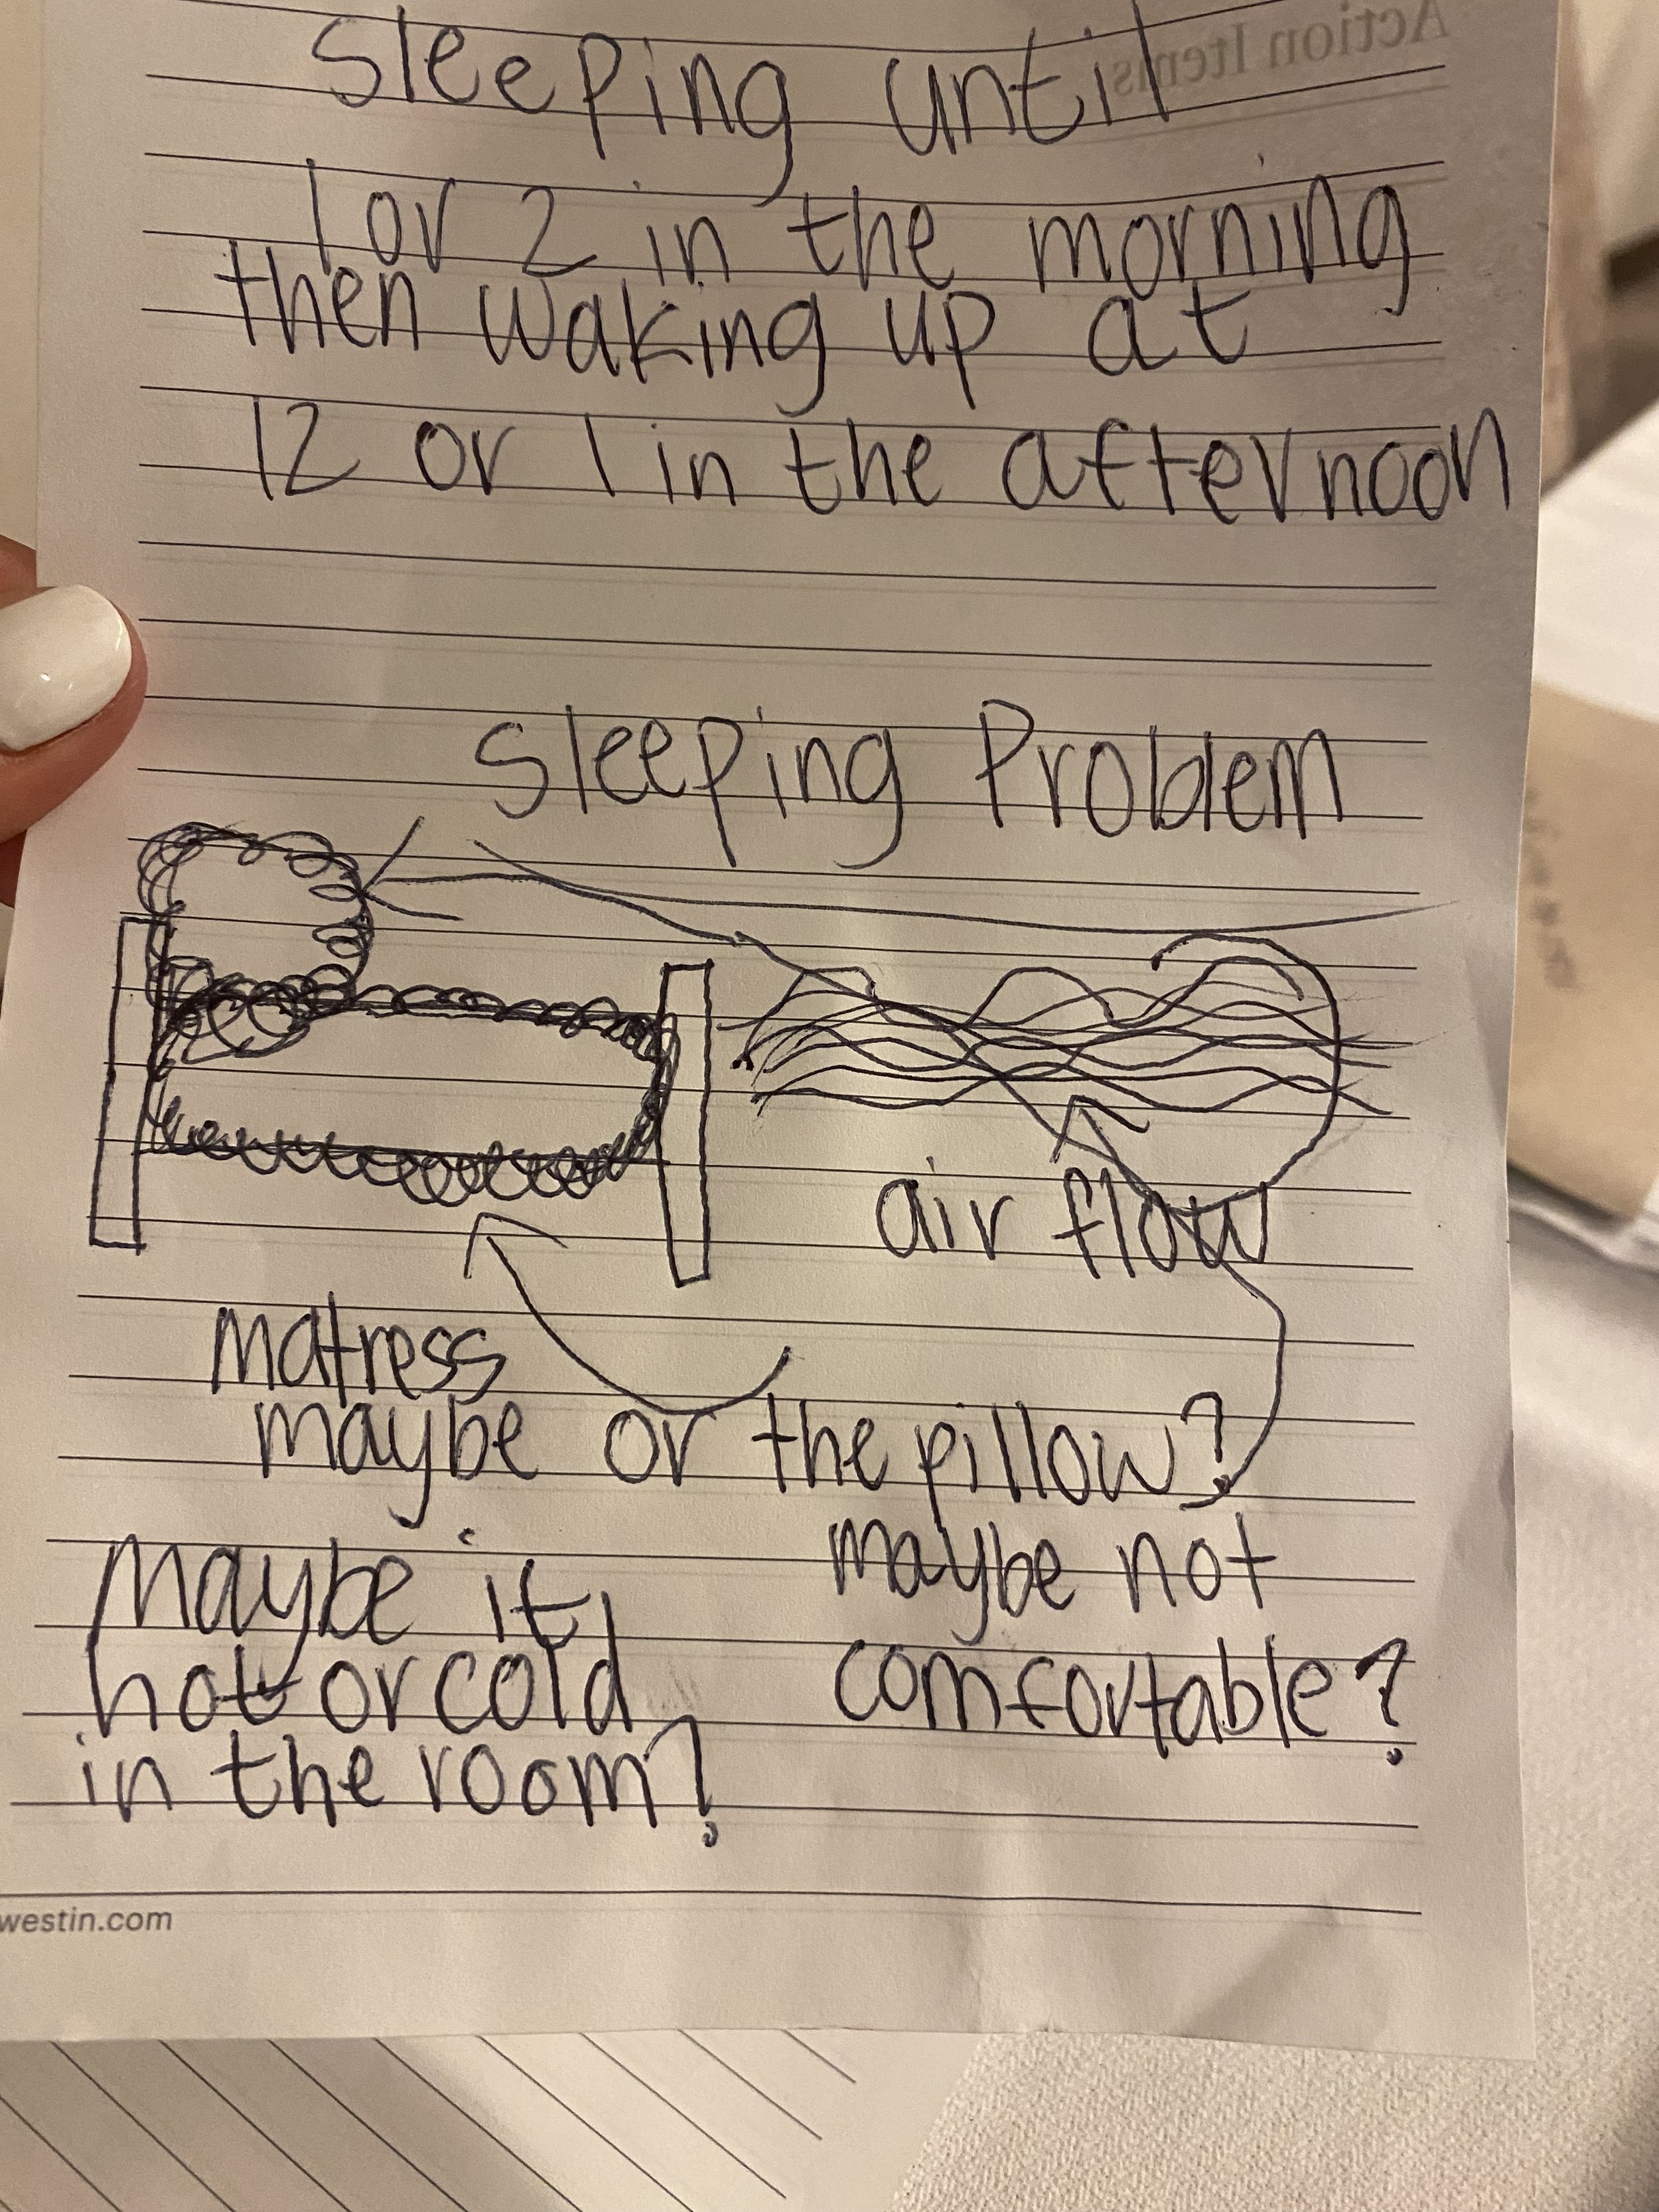 Action Items
sleeping until
1 or 2 in the morning
then waking up at
12 or 1 in the afternoon
sleeping Problem
air flow
matress
maybe or the pillow?
maybe it
hot or cold
in the room?
maybe not
comfortable?
westin.com